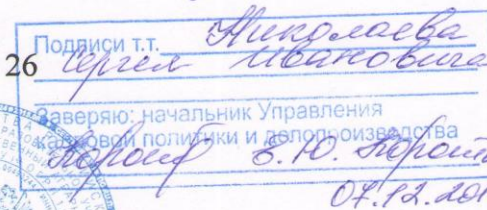 Подписи т.т. Николаева
26 Сергея Ивановича
Заверяю: начальник Управления
кадровой политики и делопроизводства
07.12.201